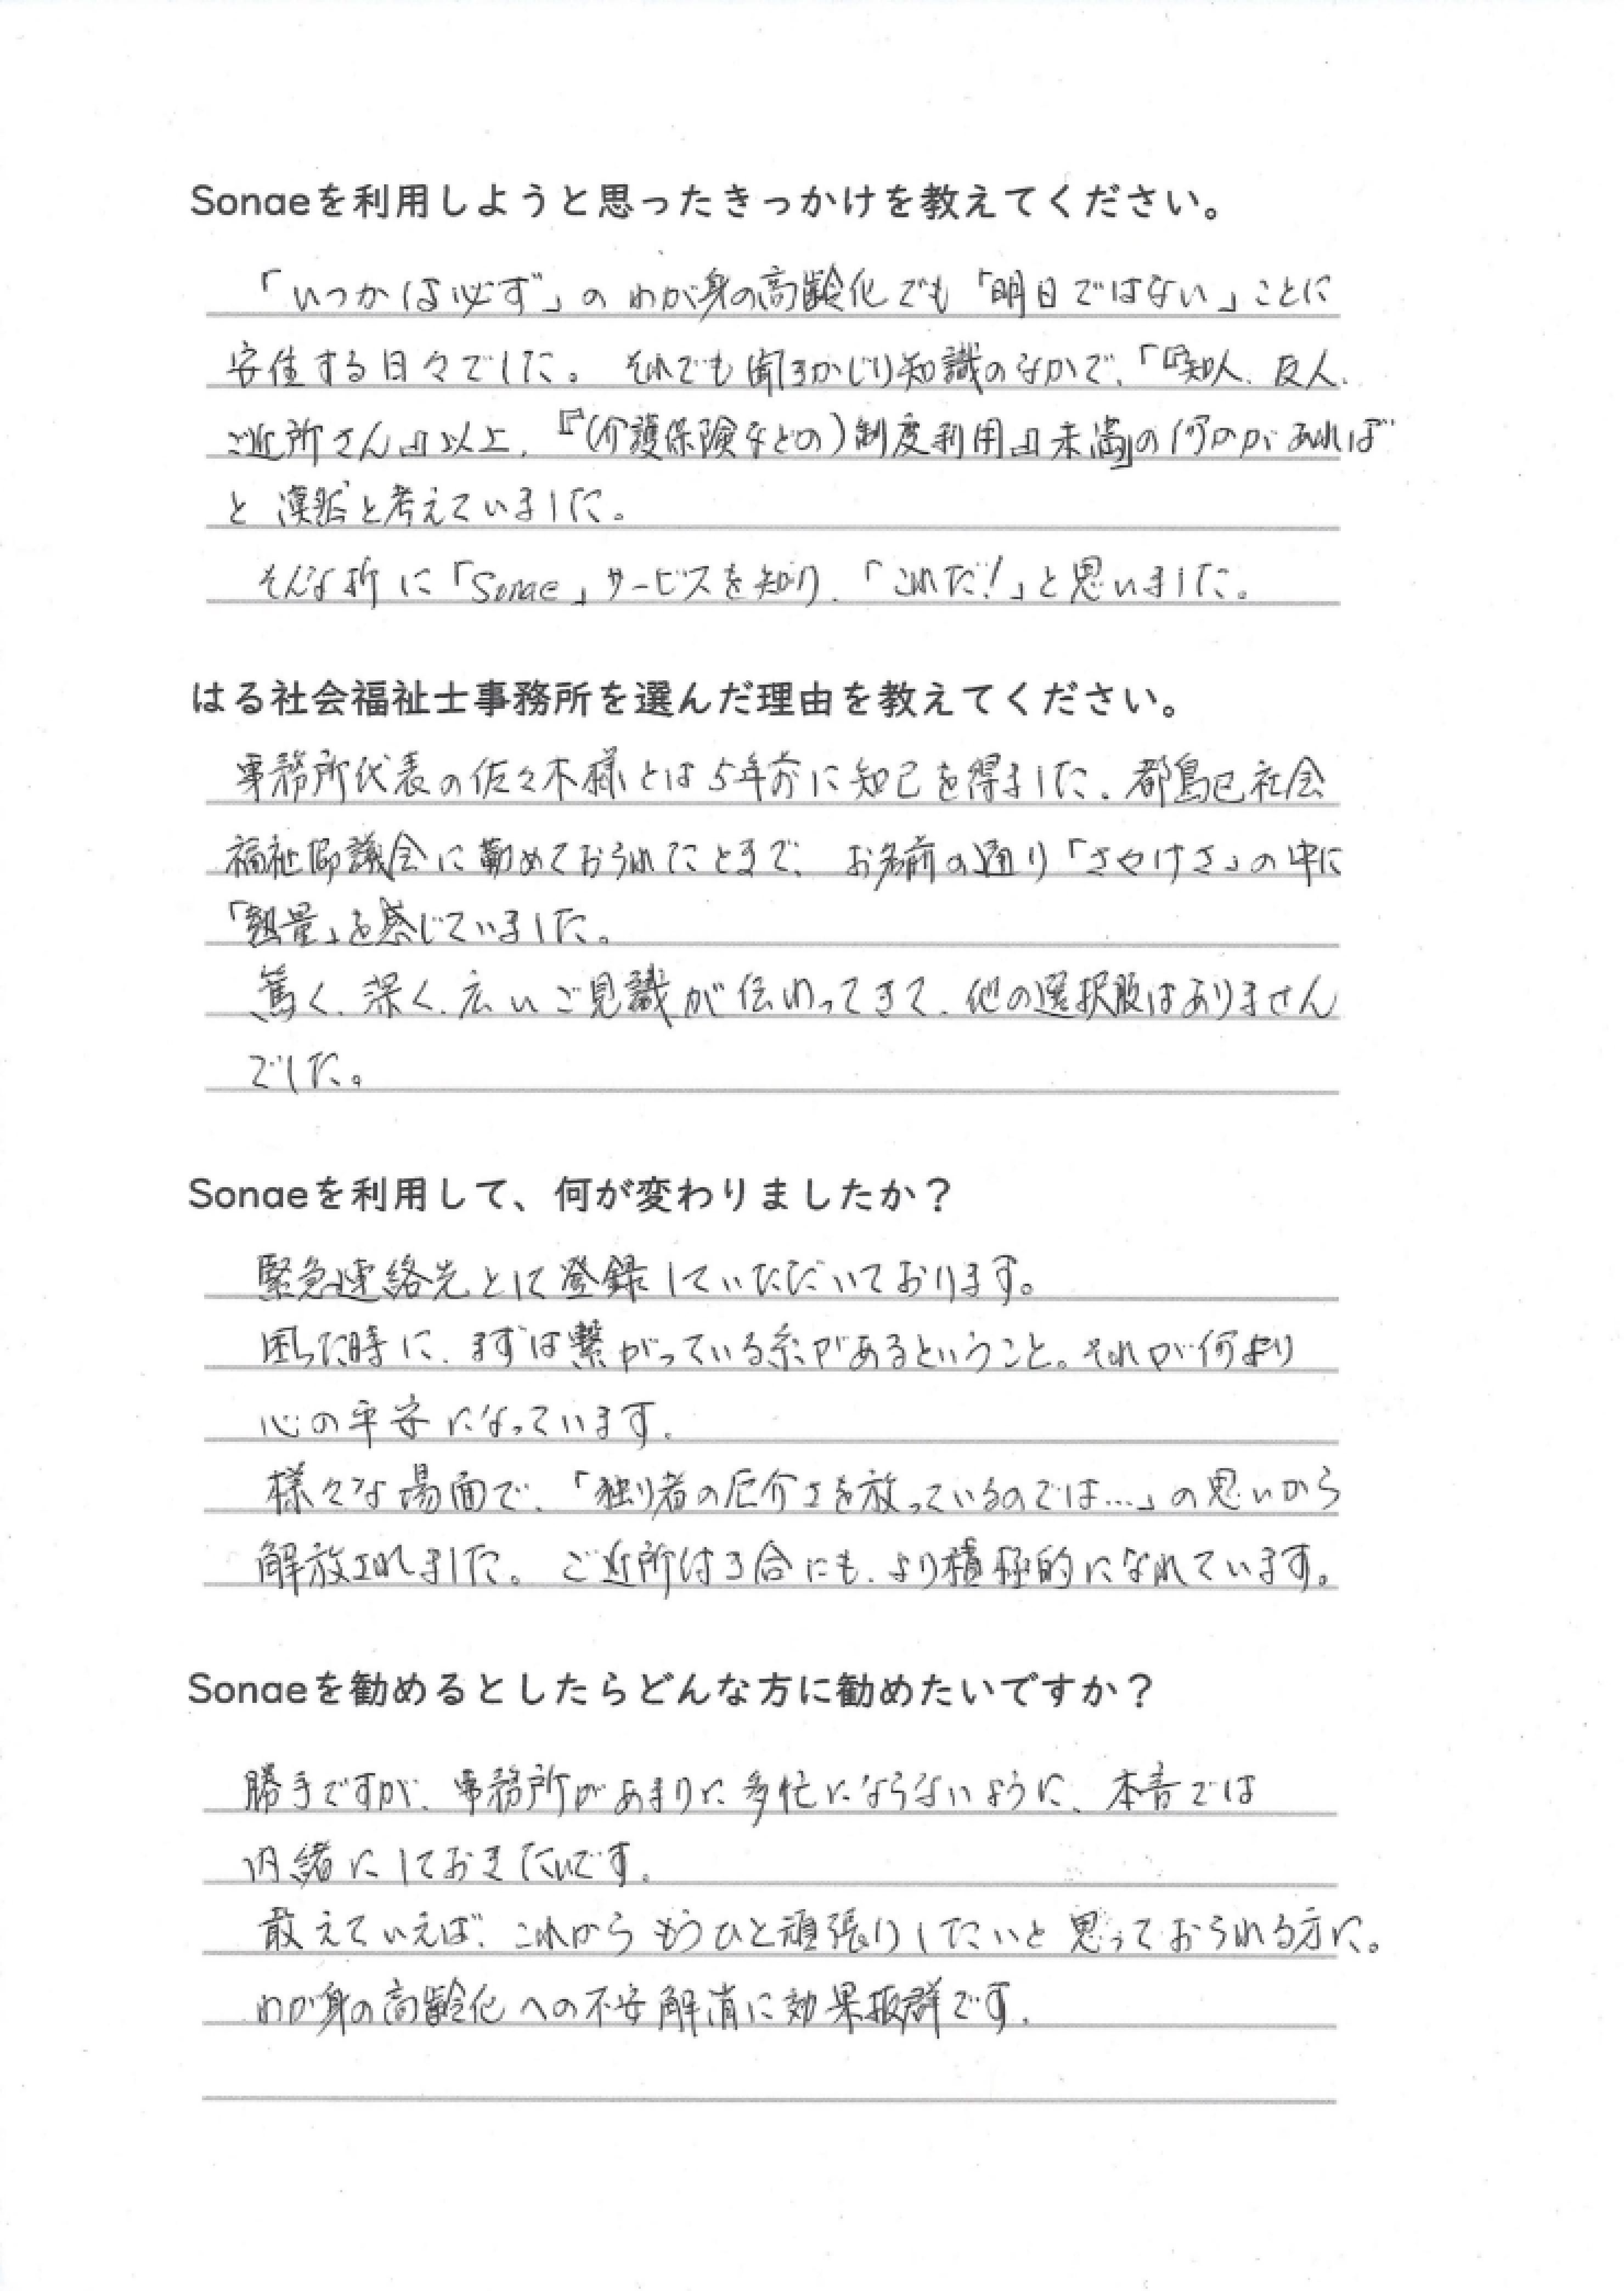 Sonaeを利用しようと思ったきっかけを教えてください。
「いつかは必ず」のわが身の高齢化でも「明日ではない」ことに
安住する日々でした。それでも聞きかじり知識のなかで、「『知人、友人、
ご近所さん』以上、『(介護保険などの)制度利用』未満」の何かがあれば
と漠然と考えていました。
そんな折に「Sonae」サービスを知り、「これだ!」と思いました。
はる社会福祉士事務所を選んだ理由を教えてください。
事務所代表の佐々木様とは5年前に知己を得ました。都島区社会
福祉協議会に勤めておられたことまで、お名前の通り「さやけさ」の中に
「熱量」を感じていました。
篤く、深く、広いご見識が伝わってきて、他の選択肢はありません
でした。
Sonaeを利用して、何が変わりましたか？
緊急連絡先として登録していただいております。
困った時に、まずは繋がっている糸があるということ。それが何より
心の平安になっています。
様々な場面で、「独り者の厄介さを放っているのでは…」の思いから
解放されました。ご近所付き合いにも、より積極的になれています。
Sonaeを勧めるとしたらどんな方に勧めたいですか？
勝手ですが、事務所があまりに多忙にならないように、本音では
内緒にしておきたいです。
敢えていえば、これからもうひと頑張りしたいと思っておられる方に。
わが身の高齢化への不安解消に効果抜群です。